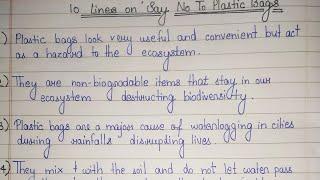 10 Lines on 'Say No To Plastic Bags
1) Plastic bags look very useful and convenient but act
as a hazard to the ecosystem.
2) They are non-biogradable items that stay in our
ecosystem destructing biodiversity.
3) Plastic bags are a major cause of waterlogging in cities
during rainfalls disrupting lives.
4) They mix t with the soil and do not let water pass